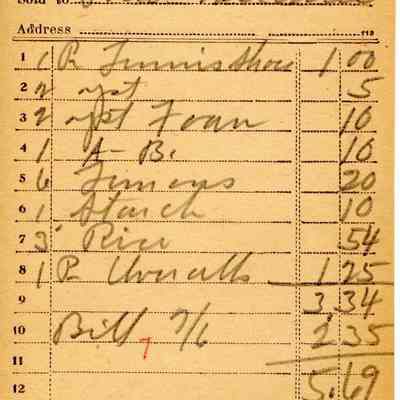 Sold to
Address
1 1 Pr Tennis Shoes 1 00
2 2 yst 5
3 2 Foam 10
4 1 A-B. 10
5 6 Lemons 20
6 1 Starch 10
7 3 Rice 54
8 1 Pr Overalls 1 25
9 3.34
10 Bill 7/6 2 35
7
11
12 5.69